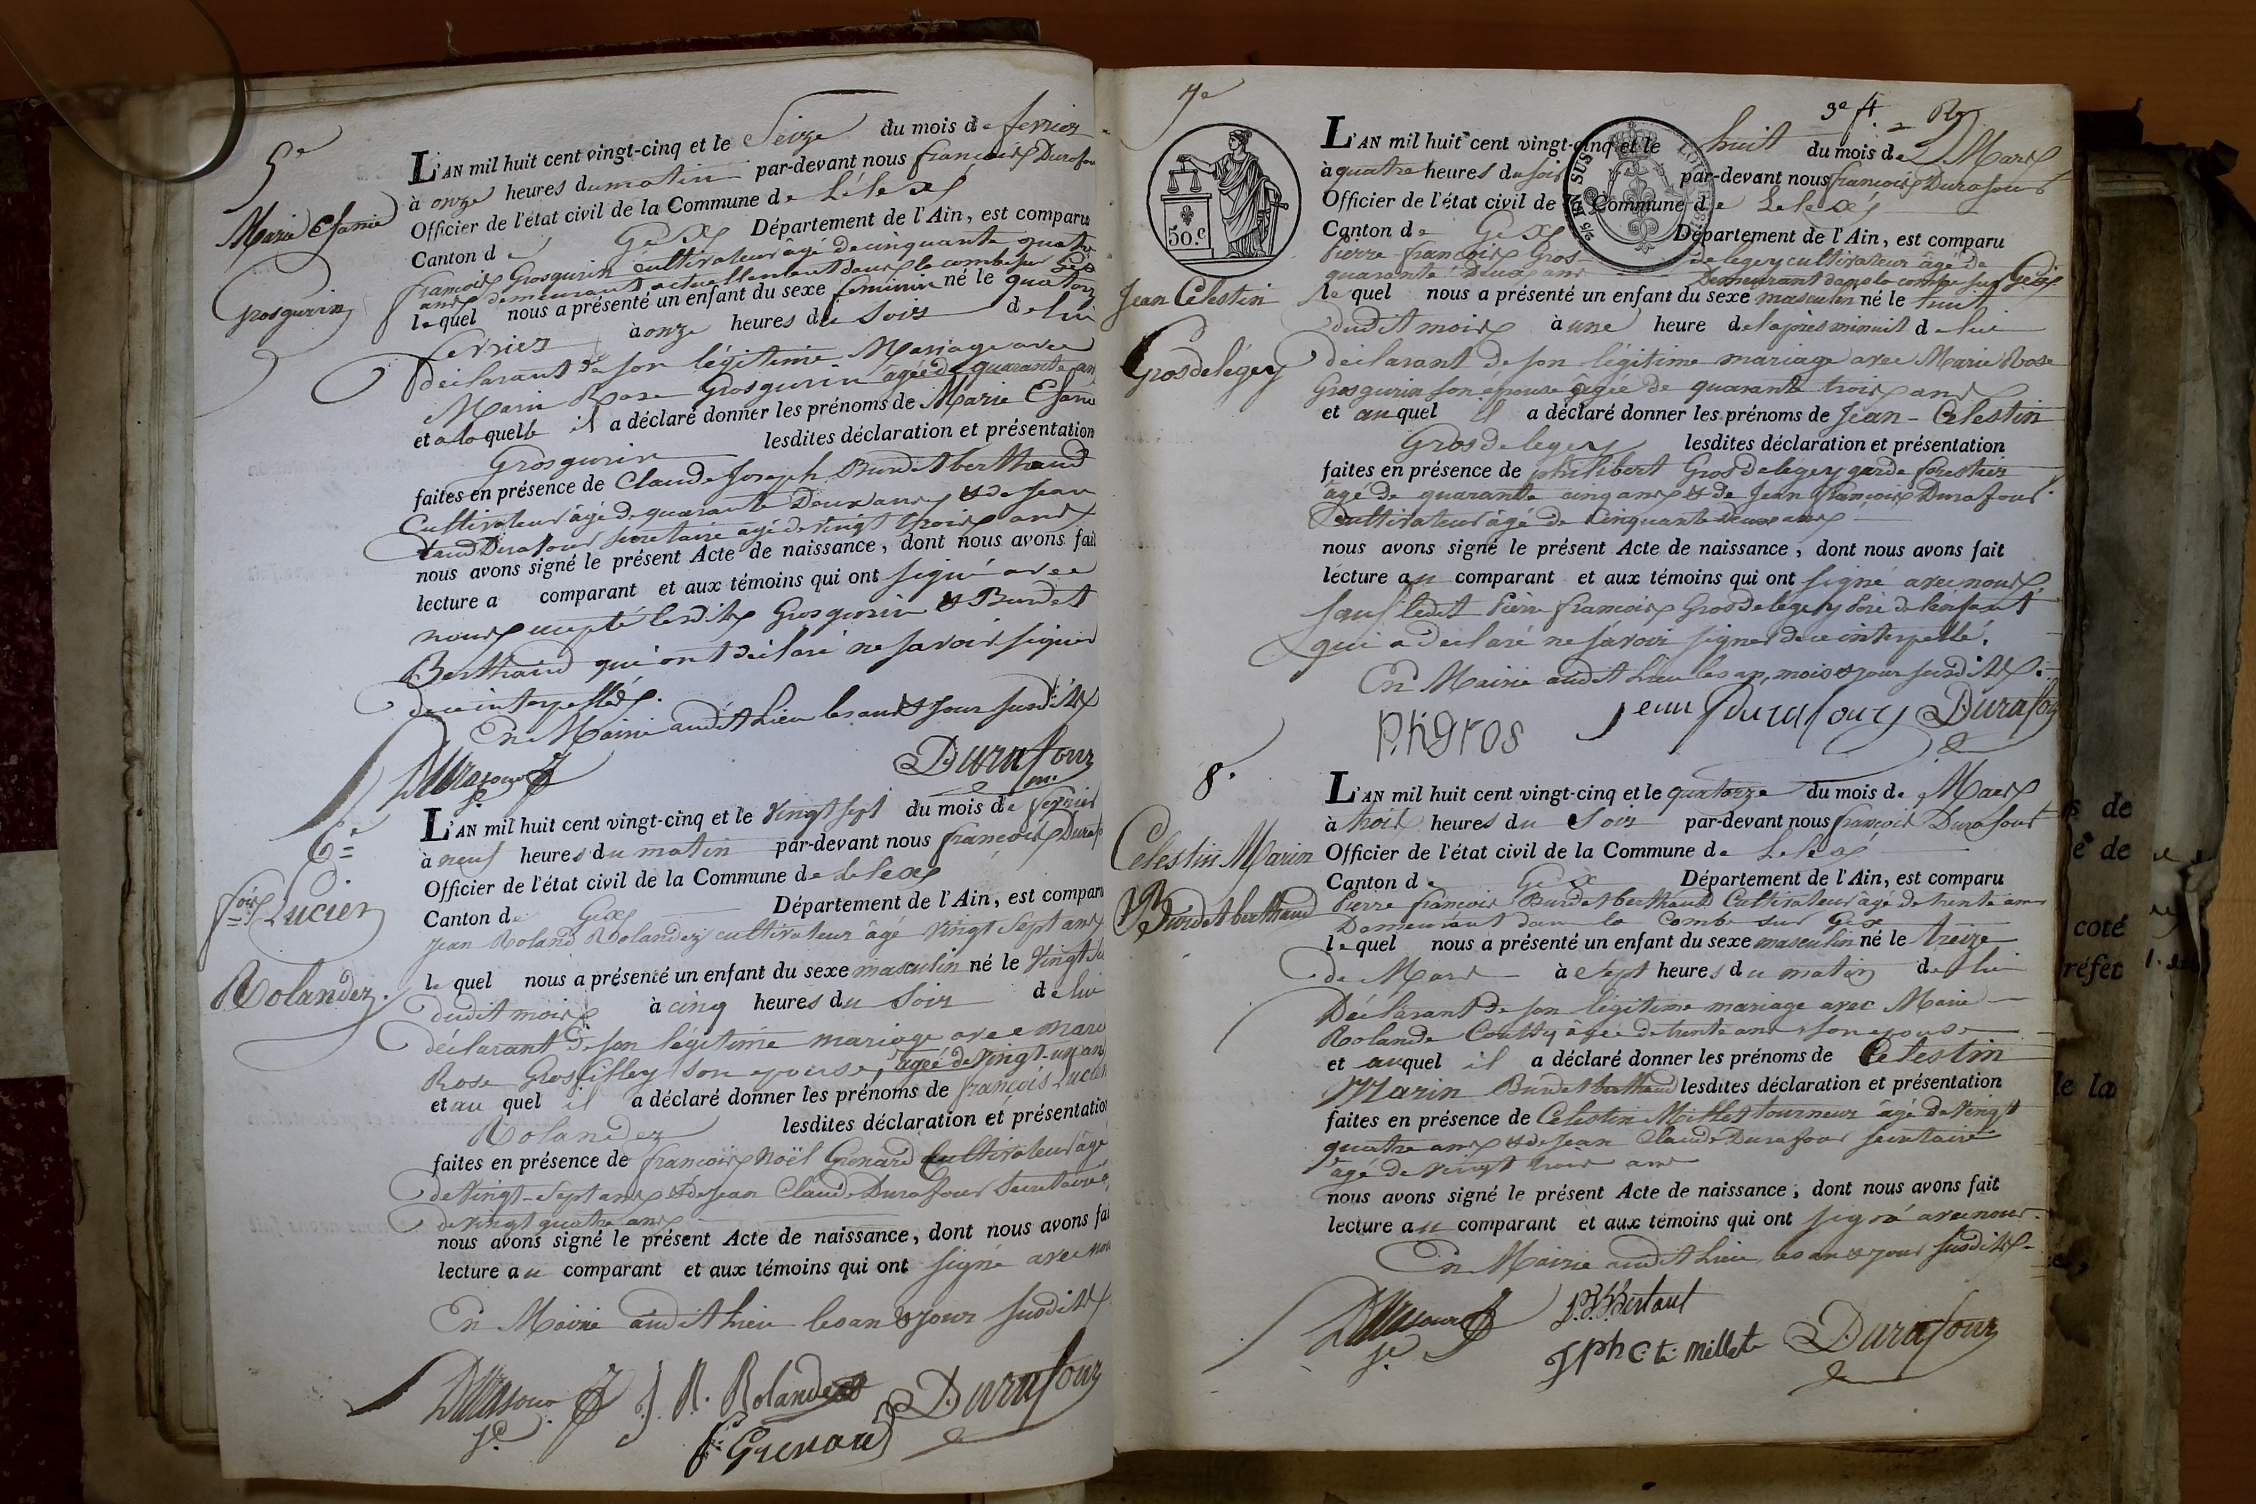 5e
Marie Esanie
Grosgurin
L'AN mil huit cent vingt-cinq et le Seize du mois de fevrier
à onze heures du matin par-devant nous françois Durafou
Officier de l'état civil de la Commune de Lélex
Canton de Gex Département de l'Ain, est comparu
françois Grosgurin cultivateur âgé de cinquante quatre
ans demeurant actuellement dans la combe sur Gex
lequel nous a présenté un enfant du sexe feminin né le quatorz
fevrier à onze heures du Soir de lui
déclarant de son légitime Mariage avec
Marie Rose Grosgurin âgée de quarante ans
et a laquelle il a déclaré donner les prénoms de Marie Esanie
Grosgurin lesdites déclaration et présentation
faites en présence de Claude Joseph Burdet berthaud
Cultivateur âgé de quarante Deux ans & de Jean
Claud Durafour secretaire âgé de vingt trois ans
nous avons signé le présent Acte de naissance, dont nous avons fait
lecture a comparant et aux témoins qui ont signé avec
nous excepté lesdits Grosgurin & Burdet
Berthaud qui ont déclaré ne savoir signer
de ce interpellés.
En Mairie audit Lieu les an & Jour susdits
Durafour
Durafour
6e
fois Lucien
Rolandez.
L'AN mil huit cent vingt-cinq et le vingt sept du mois de fevrier
à neuf heures du matin par-devant nous françois Durafo
Officier de l'état civil de la Commune de Lelex
Canton de Gex Département de l'Ain, est comparu
Jean Roland Rolandez cultivateur âgé vingt sept ans
lequel nous a présenté un enfant du sexe masculin né le vingt
dudit mois à cinq heures du Soir de lui
déclarant de son légitime mariage avec Marie
Rose Grosfilley son epouse, âgée de vingt-un an
et au quel il a déclaré donner les prénoms de françois Lucien
Rolandez lesdites déclaration et présentation
faites en présence de françois Noël Grenard Cultivateur âgé
de vingt-sept ans & de Jean Claude Durafour Secretaire
de vingt quatre ans
nous avons signé le présent Acte de naissance, dont nous avons fai
lecture au comparant et aux témoins qui ont signé avec nou
En Mairie audit Lieu les an & jour susdits
Durafour J. R. Rolandez Durafour
f. Grenard
7e
3e f.
50.c
Jean Célestin
Grosdelégey
L'AN mil huit cent vingt-cinq et le huit du mois de Mars
à quatre heures du soir par-devant nous françois Durafour
Officier de l'état civil de la Commune de Lelex
Canton de Gex Département de l'Ain, est comparu
Pierre-françois Gros-delegey cultivateur âgé de
quarante Deux ans Demeurant dans la combe sur Gex
lequel nous a présenté un enfant du sexe masculin né le huit
dudit mois à une heure de l'après minuit de lui
déclarant de son légitime mariage avec Marie Rose
Grosgurin son epouse âgée de quarante trois ans
et au quel il a déclaré donner les prénoms de Jean-Celestin
Gros delegey lesdites déclaration et présentation
faites en présence de philibert Gros delegey garde forestier
âgé de quarante cinq ans & de Jean françois Durafour
Cultivateur âgé de Cinquante deux ans
nous avons signé le présent Acte de naissance, dont nous avons fait
lecture au comparant et aux témoins qui ont signé avec nous
sauf ledit Pierre françois Gros Delegey père de l'enfant
qui a déclaré ne savoir signer de ce interpellé.
En Mairie audit Lieu les an, mois & jour susdits.
P.h gros Jean durafour Durafour
8.
Celestin Marin
Burdet berthaud
L'AN mil huit cent vingt-cinq et le quatorze du mois de Mars
à trois heures du Soir par-devant nous françois Durafour
Officier de l'état civil de la Commune de Lelex
Canton de Gex Département de l'Ain, est comparu
Pierre françois Burdet berthaud Cultivateur âgé de trente ans
Demeurant dans la Combe sur Gex
lequel nous a présenté un enfant du sexe masculin né le treize
de Mars à sept heures du matin de lui
Déclarant de son légitime mariage avec Marie
Rolande Coutty âgée de trente ans son epouse
et auquel il a déclaré donner les prénoms de Celestin
Marin Burdet berthaud lesdites déclaration et présentation
faites en présence de Celestin Millet tourneur âgé de vingt
quatre ans & de Jean Claude Durafour secretaire
âgé de vingt trois ans
nous avons signé le présent Acte de naissance, dont nous avons fait
lecture au comparant et aux témoins qui ont signé avec nous.
En Mairie audit Lieu, les an & jour susdits
Durafour
Jph Ctin Millet Durafour